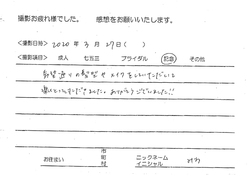 撮影お疲れ様でした。 感想をお願いいたします。
撮影日時> 2020年 3月 27日 ( )
撮影項目> 成人 七五三 ブライダル 記念 その他
希望通りの髪型やメイクをしていただいて
嬉しかったです! ありがとうございました!!
お住まい 市 町 村 ニックネーム イニシャル